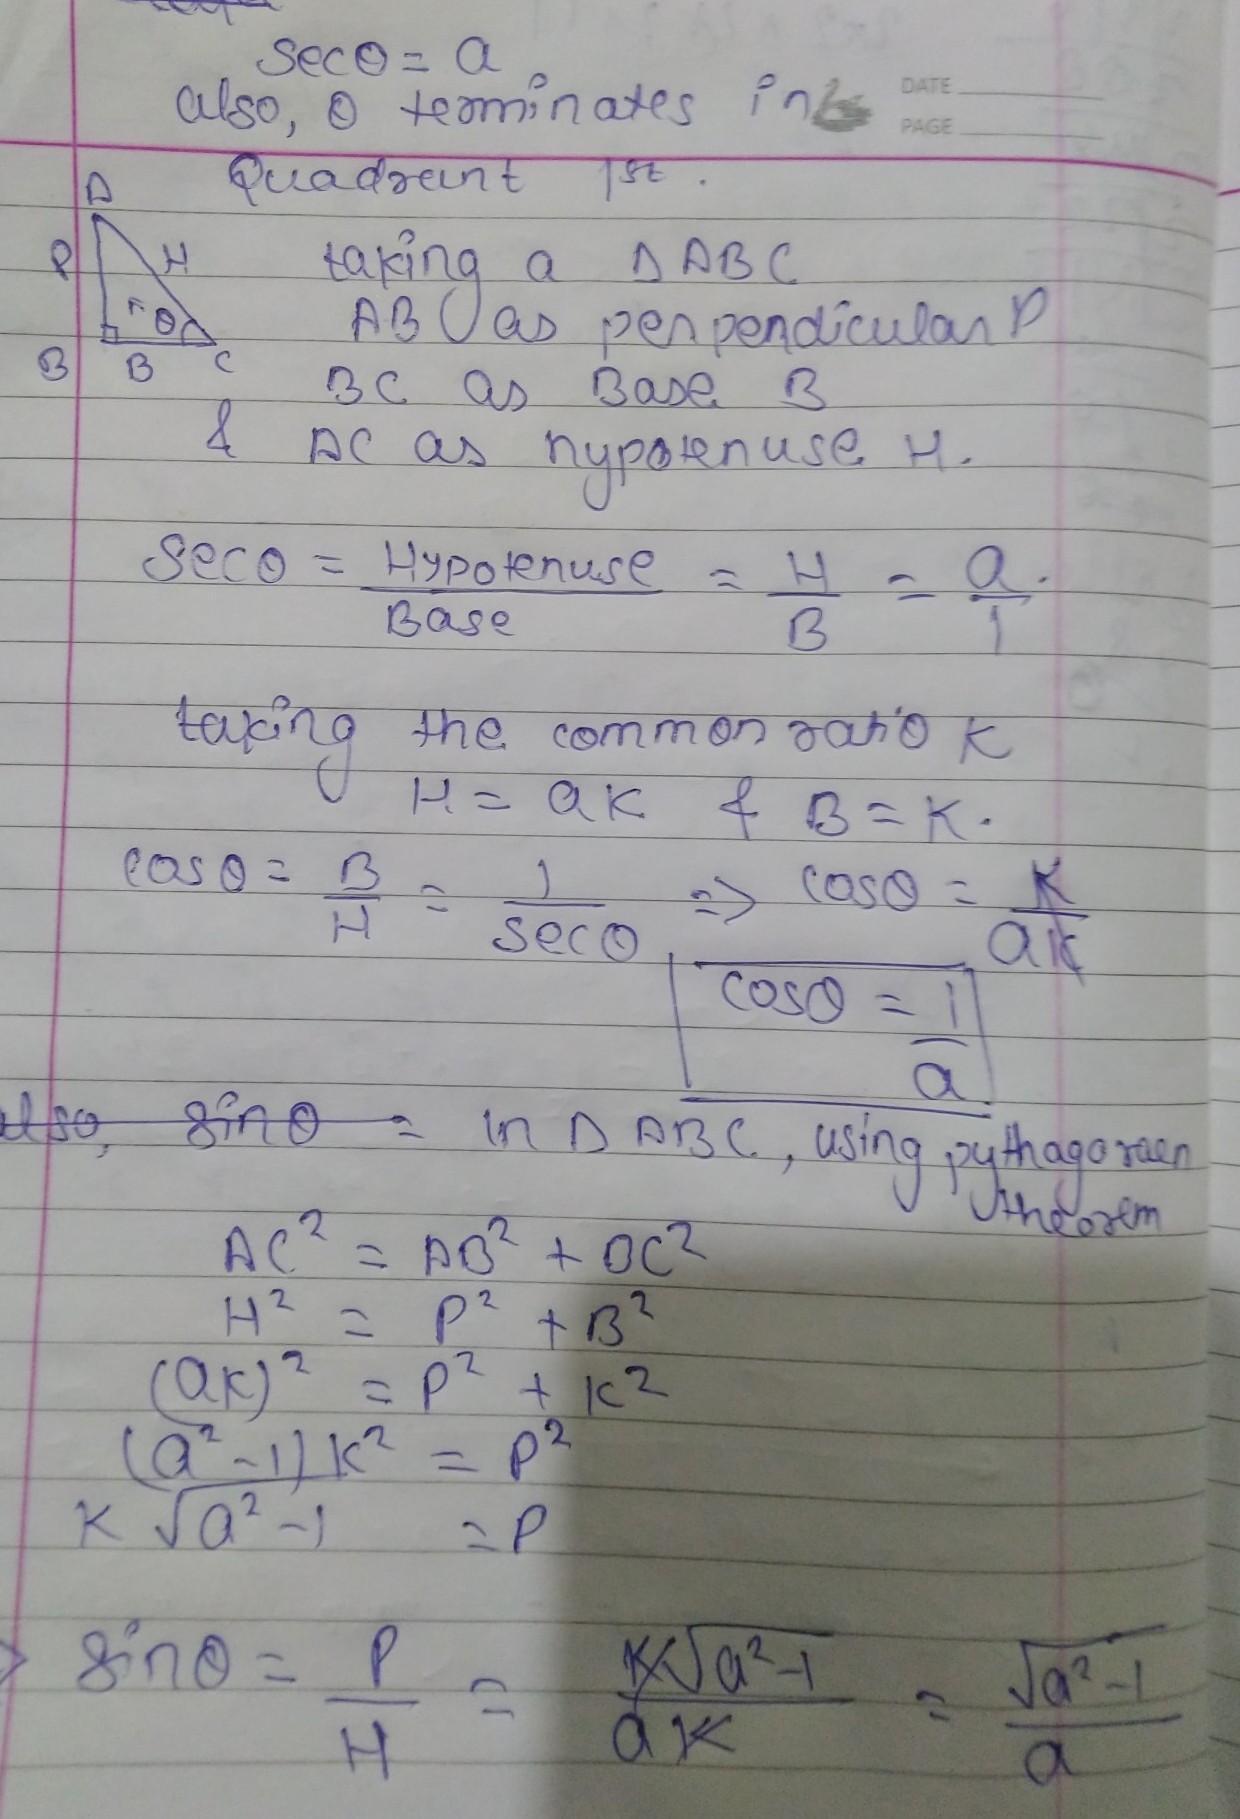 secθ = a
also, θ terminates in
DATE
PAGE
Quadrant 1st.
A
P H
θ
B B C
taking a Δ ABC
AB as perpendicular P
BC as Base B
& AC as hypotenuse H.
secθ = Hypotenuse/Base = H/B = a/1.
taking the common ratio K
H = aK & B = K.
cosθ = B/H = 1/secθ => cosθ = K/aK
cosθ = 1/a
also, sinθ = in Δ ABC, using pythagoraen
theorem
AC² = AB² + BC²
H² = P² + B²
(aK)² = P² + K²
(a²-1)K² = P²
K √a²-1 = P
sinθ = P/H = K√a²-1/aK = √a²-1/a